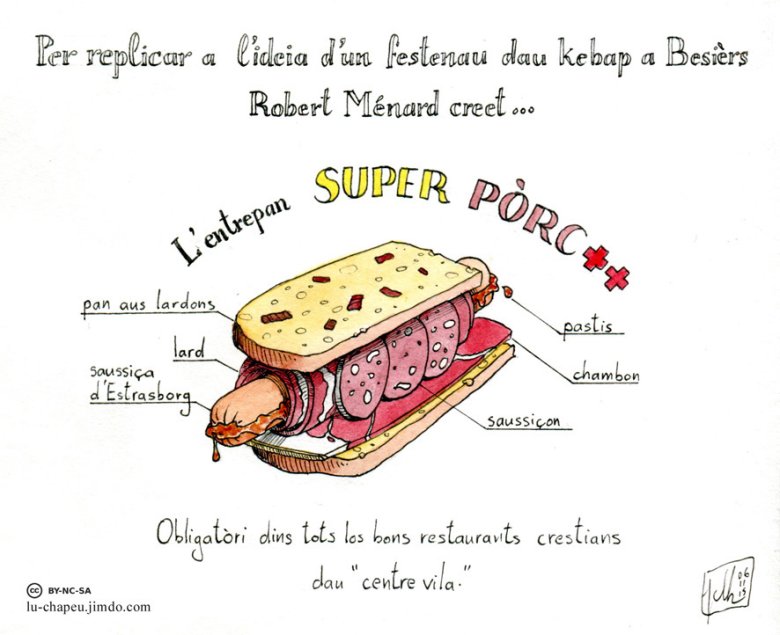 Per replicar a l'ideia d'un festenau dau kebap a Besièrs
Robert Ménard creet...
L'entrepan SUPER PÒRC++
pan aus lardons
lard
saussiça
d'Estrasborg
pastis
chambon
saussiçon
Obligatòri dins tots los bons restaurants crestians
dau "centre vila."
cc BY-NC-SA
lu-chapeu.jimdo.com
06
11
15